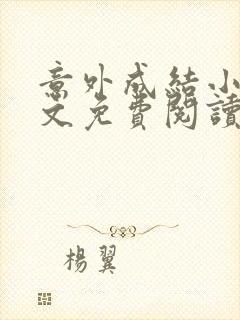 意外成結小
文免費閱讀
楊翼